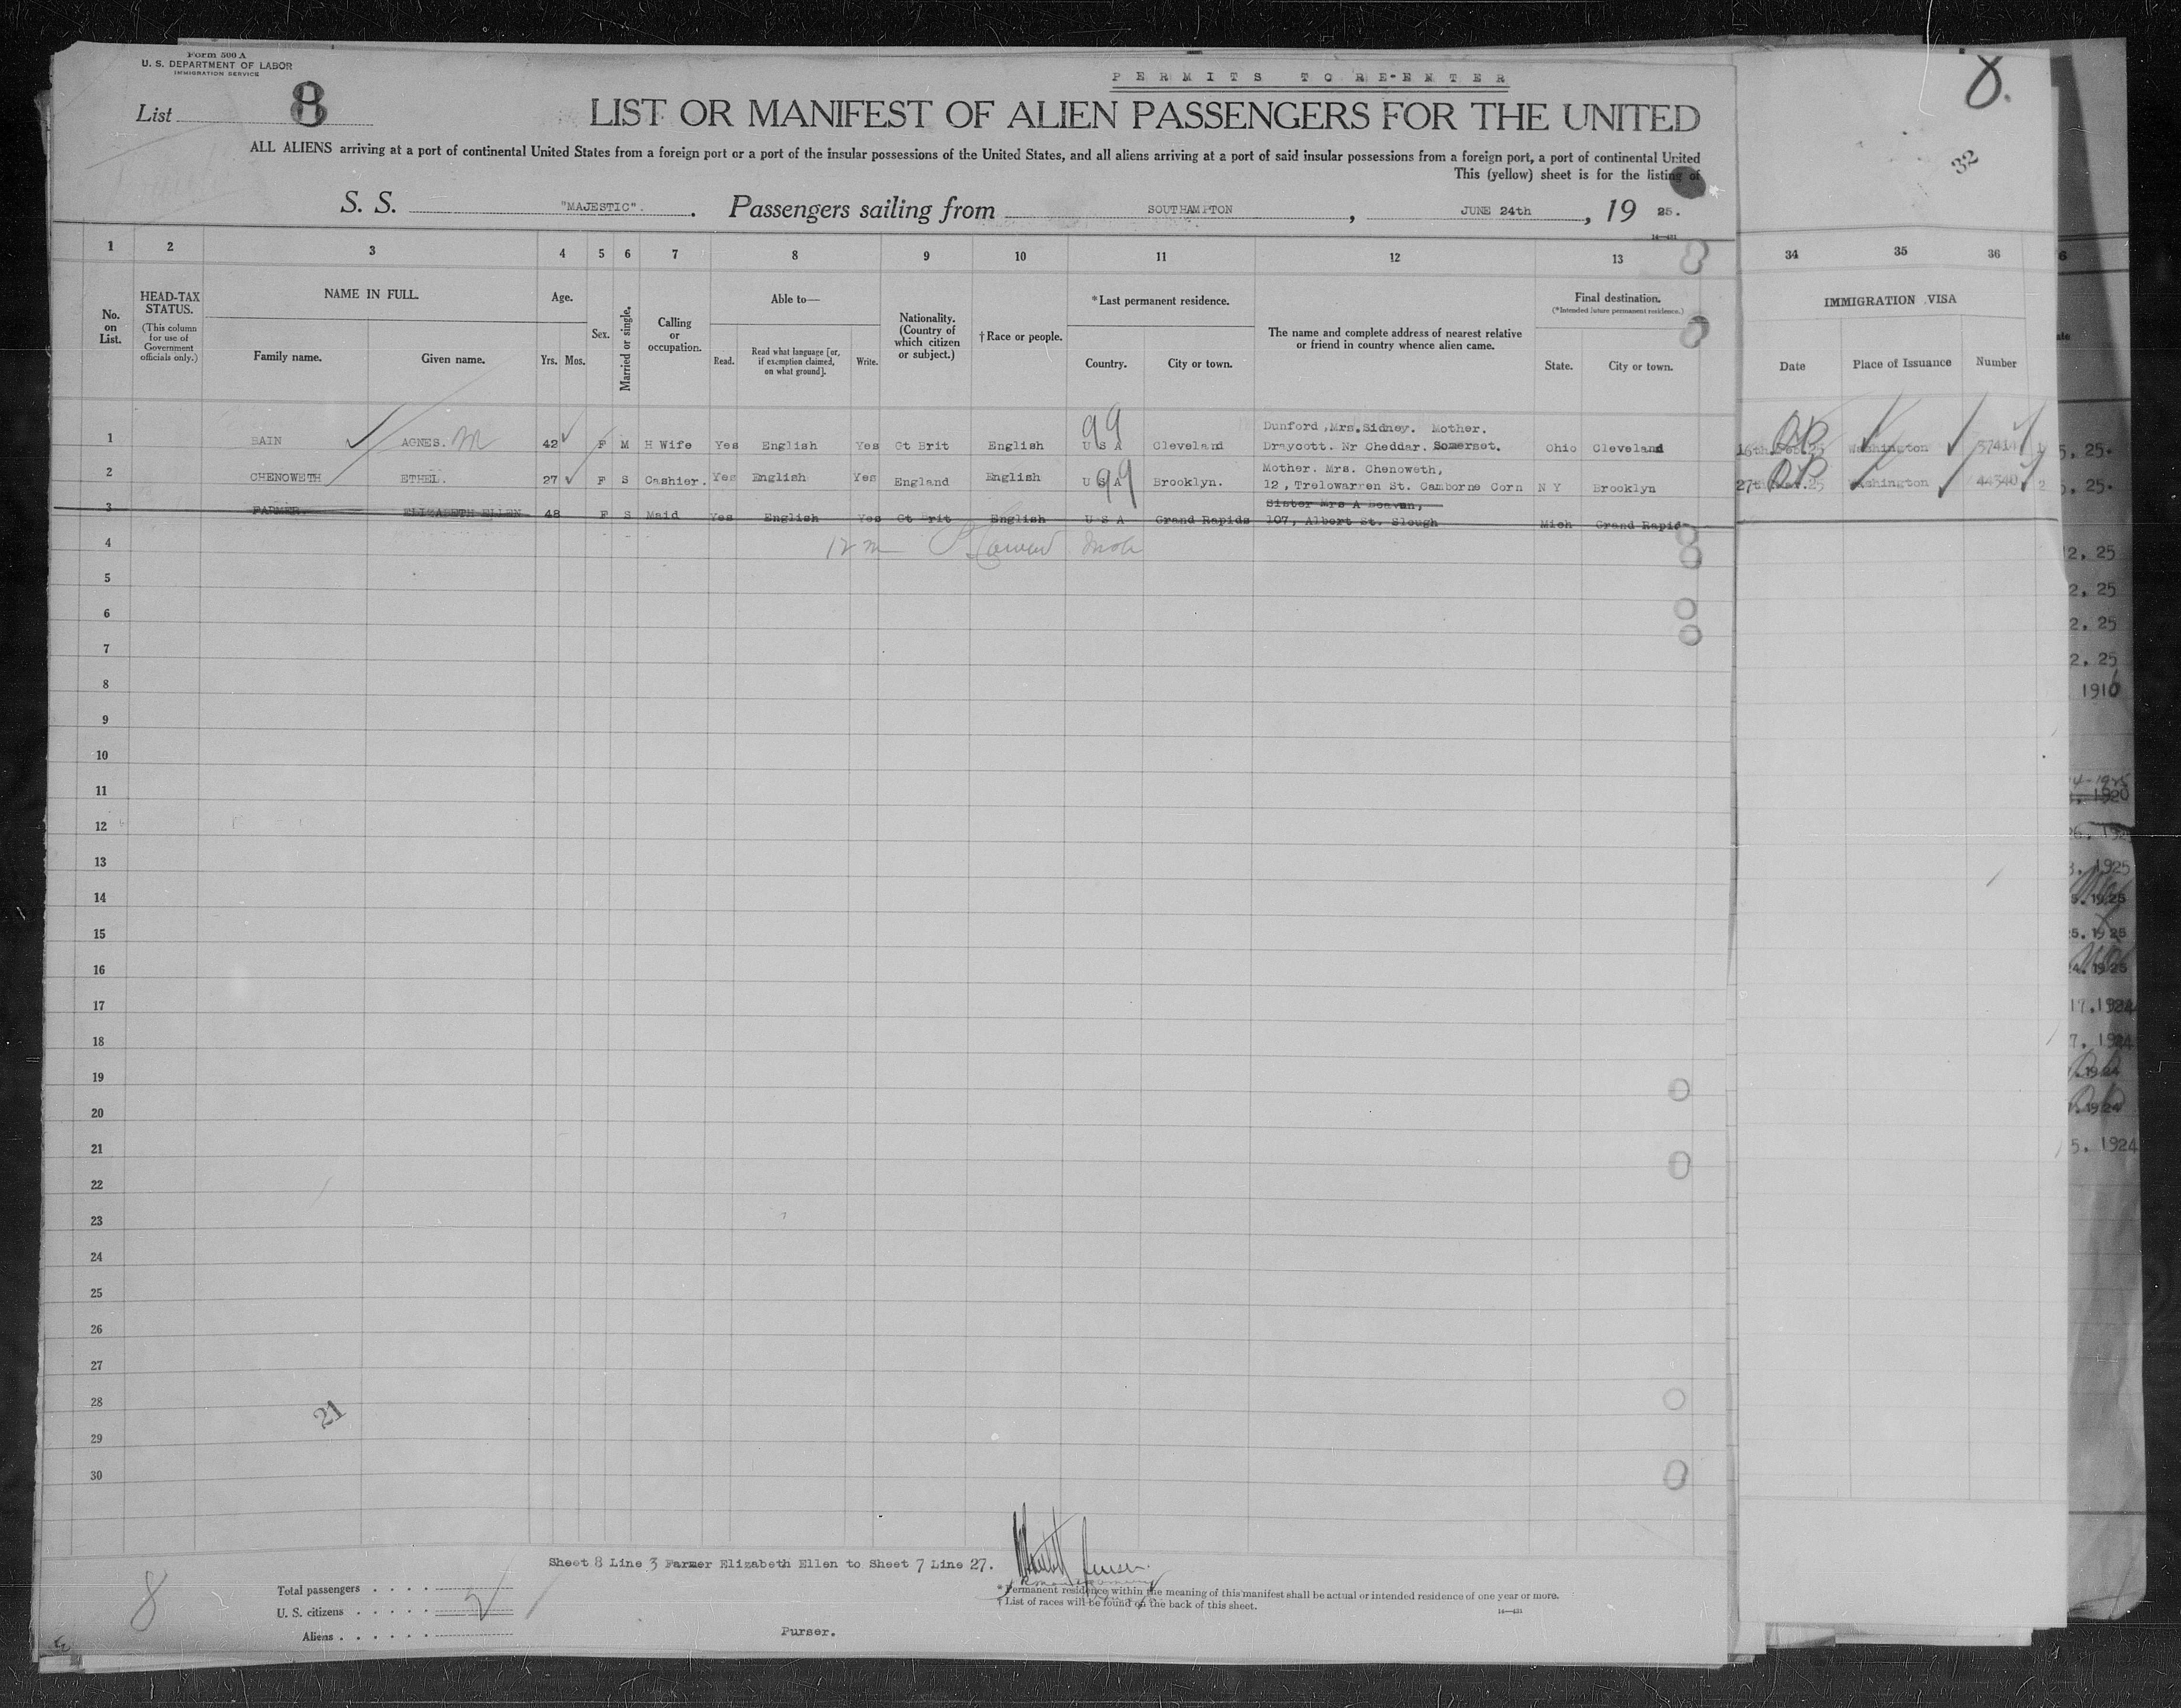 Form 500 A
U. S. DEPARTMENT OF LABOR
IMMIGRATION SERVICE
PERMITS TO RE-ENTER
8.
List 8
LIST OR MANIFEST OF ALIEN PASSENGERS FOR THE UNITED
32
ALL ALIENS arriving at a port of continental United States from a foreign port or a port of the insular possessions of the United States, and all aliens arriving at a port of said insular possessions from a foreign port, a port of continental United
This (yellow) sheet is for the listing of
S. S. "MAJESTIC". Passengers sailing from SOUTHAMPTON, JUNE 24th, 19 25.
1 2 3 4 5 6 7 8 9 10 11 12 13 34 35 36
No. on List.
HEAD-TAX STATUS.
(This column for use of Government officials only.)
NAME IN FULL.
Family name. Given name.
Age.
Yrs. Mos.
Sex.
Married or single.
Calling or occupation.
Able to—
Read. Read what language [or, if exemption claimed, on what ground]. Write.
Nationality. (Country of which citizen or subject.)
†Race or people.
*Last permanent residence.
Country. City or town.
The name and complete address of nearest relative or friend in country whence alien came.
Final destination.
(*Intended future permanent residence.)
State. City or town.
IMMIGRATION VISA
Date Place of Issuance Number
99
Dunford, Mrs. Sidney. Mother.
1 BAIN AGNES. M 42 F M H Wife Yes English Yes Gt Brit English U S A Cleveland Draycott. Nr Cheddar. Somerset. Ohio Cleveland Washington
Mother. Mrs. Chenoweth,
2 CHENOWETH ETHEL. 27 F S Cashier. Yes English Yes England English U S A 99 Brooklyn. 12, Trelowarren St. Camborne Corn N Y Brooklyn Washington 44340
Sister Mrs A Beavan,
3 FARMER ELIZABETH ELLEN 48 F S Maid Yes English Yes Gt Brit English U S A Grand Rapids 107, Albert St. Slough Mich Grand Rapid
4
5
6
7
8
9
10
11
12
13
14
15
16
17
18
19
20
21
22
23
24
25
26
27
28
29
30
21
Sheet 8 Line 3 Farmer Elizabeth Ellen to Sheet 7 Line 27.
8
Total passengers
U. S. citizens
Aliens
2
* Permanent residence within the meaning of this manifest shall be actual or intended residence of one year or more.
† List of races will be found on the back of this sheet.
14—421
Purser.